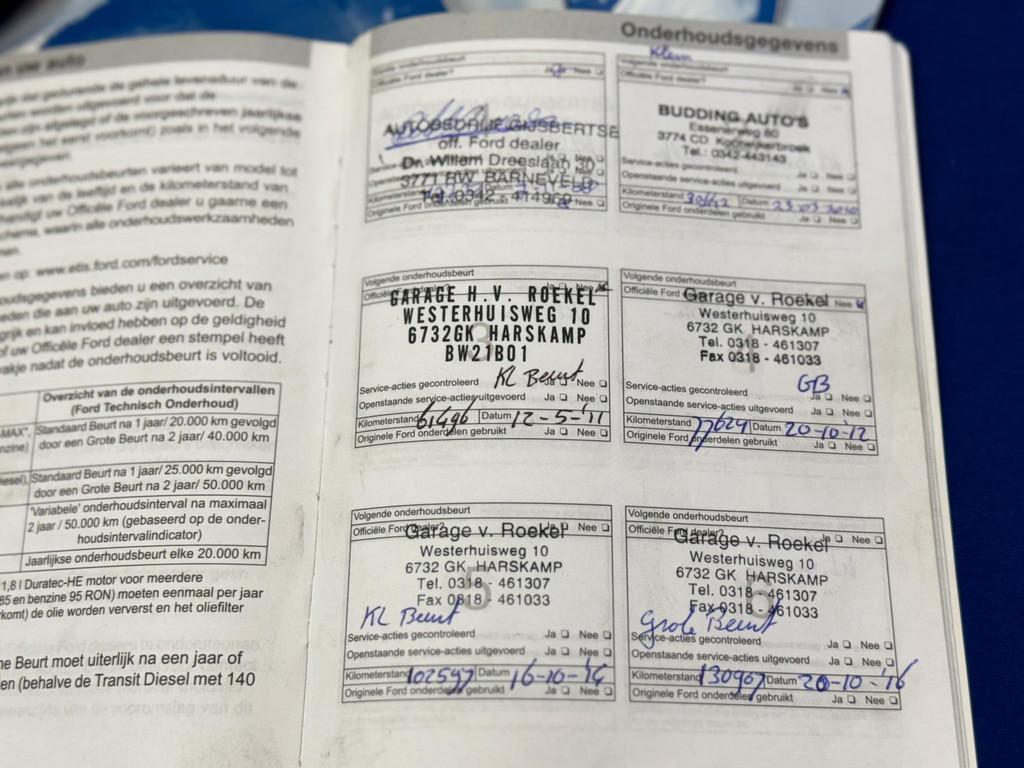 Onderhoudsgegevens
uw auto
gedurende de gehele levensduur van de
worden uitgevoerd voor dat de
of de voorgeschreven jaarlijkse
het eerst voorkomt) zoals in het volgende
alle onderhoudsbeurten varieert van model tot
van de leeftijd en de kilometerstand van
u Officiële Ford dealer u gaarne een
waarin alle onderhoudswerkzaamheden
op: www.etis.ford.com/fordservice
bieden u een overzicht van
die aan uw auto zijn uitgevoerd. De
en kan invloed hebben op de geldigheid
of uw Officiële Ford dealer een stempel heeft
nadat de onderhoudsbeurt is voltooid.
Overzicht van de onderhoudsintervallen
(Ford Technisch Onderhoud)
Standaard Beurt na 1 jaar/ 20.000 km gevolgd
door een Grote Beurt na 2 jaar/ 40.000 km
Standaard Beurt na 1 jaar/ 25.000 km gevolgd
door een Grote Beurt na 2 jaar/ 50.000 km
'Variabele' onderhoudsinterval na maximaal
2 jaar / 50.000 km (gebaseerd op de onder-
houdsintervalindicator)
Jaarlijkse onderhoudsbeurt elke 20.000 km
1,8 l Duratec-HE motor voor meerdere
85 en benzine 95 RON) moeten eenmaal per jaar
de olie worden ververst en het oliefilter
Beurt moet uiterlijk na een jaar of
(behalve de Transit Diesel met 140
Volgende onderhoudsbeurt
Officiële Ford dealer? Ja Nee
off. Ford dealer
Dr. Willem Dreeslaan 30
3771 RW BARNEVELD
Tel. 0342 - 414969
Kilometerstand Datum
Originele Ford onderdelen gebruikt
Klein
Volgende onderhoudsbeurt
Officiële Ford dealer? Ja Nee
BUDDING AUTO'S
Essenerweg 80
3774 CD Kootwijkerbroek
Tel.: 0342-443143
Service-acties gecontroleerd
Openstaande service-acties uitgevoerd Ja Nee
Kilometerstand Datum 23-03-2010
Originele Ford onderdelen gebruikt Ja Nee
Volgende onderhoudsbeurt
Officiële Nee
GARAGE H.V. ROEKEL
WESTERHUISWEG 10
6732GK HARSKAMP
BW21B01
KL Beurt
Service-acties gecontroleerd Ja Nee
Openstaande service-acties uitgevoerd Ja Nee
Kilometerstand 61496 Datum 12-5-'11
Originele Ford onderdelen gebruikt Ja Nee
Volgende onderhoudsbeurt
Officiële Ford Nee
Garage v. Roekel
Westerhuisweg 10
6732 GK HARSKAMP
Tel. 0318 - 461307
Fax 0318 - 461033
GB
Service-acties gecontroleerd Ja Nee
Openstaande service-acties uitgevoerd Ja Nee
Kilometerstand 77629 Datum 20-10-'12
Originele Ford onderdelen gebruikt Ja Nee
Volgende onderhoudsbeurt
Officiële Ford dealer? Ja Nee
Garage v. Roekel
Westerhuisweg 10
6732 GK HARSKAMP
Tel. 0318 - 461307
Fax 0318 - 461033
5
KL Beurt
Service-acties gecontroleerd Ja Nee
Openstaande service-acties uitgevoerd Ja Nee
Kilometerstand 102597 Datum 16-10-'14
Originele Ford onderdelen gebruikt Ja Nee
Volgende onderhoudsbeurt
Officiële Ford dealer? Ja Nee
Garage v. Roekel
Westerhuisweg 10
6732 GK HARSKAMP
Tel. 0318 - 461307
Fax 0318 - 461033
6
Grote Beurt
Service-acties gecontroleerd Ja Nee
Openstaande service-acties uitgevoerd Ja Nee
Kilometerstand 130967 Datum 20-10-'16
Originele Ford onderdelen gebruikt Ja Nee